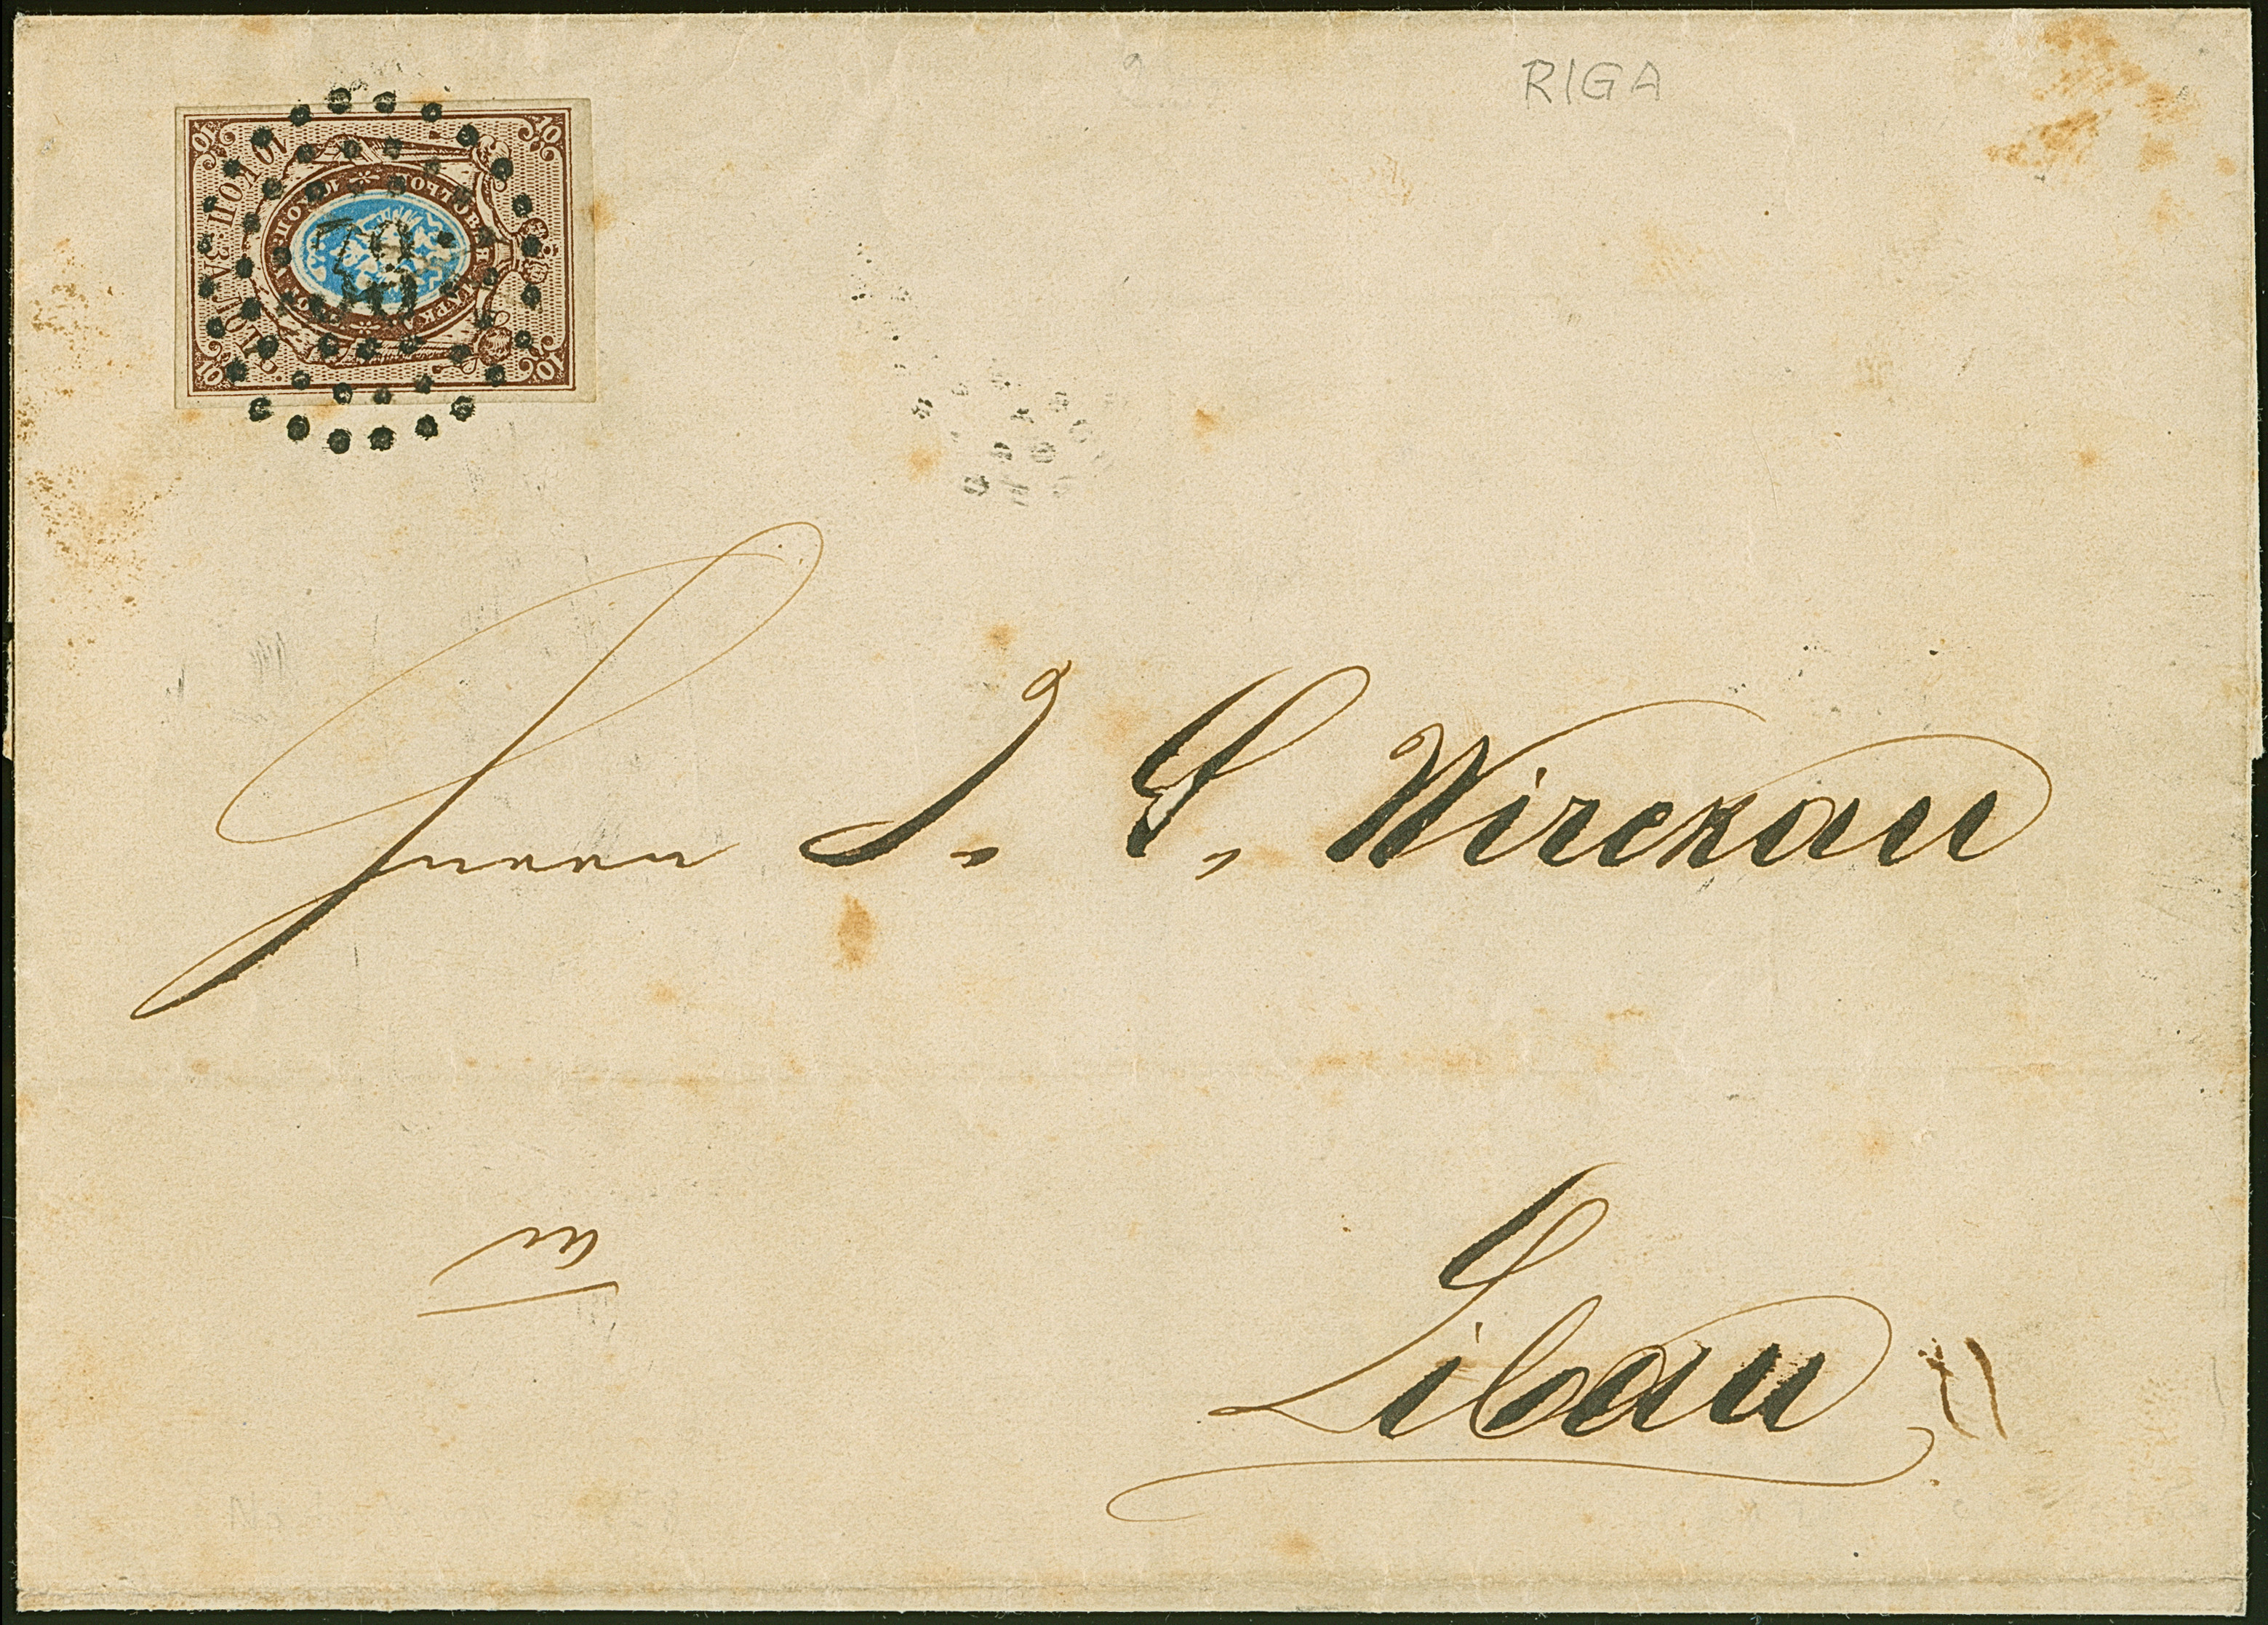 RIGA
10 КОП. ЗА ЛОТЪ
10 10 10 10
Herrn J. L. Wirckau
Libau